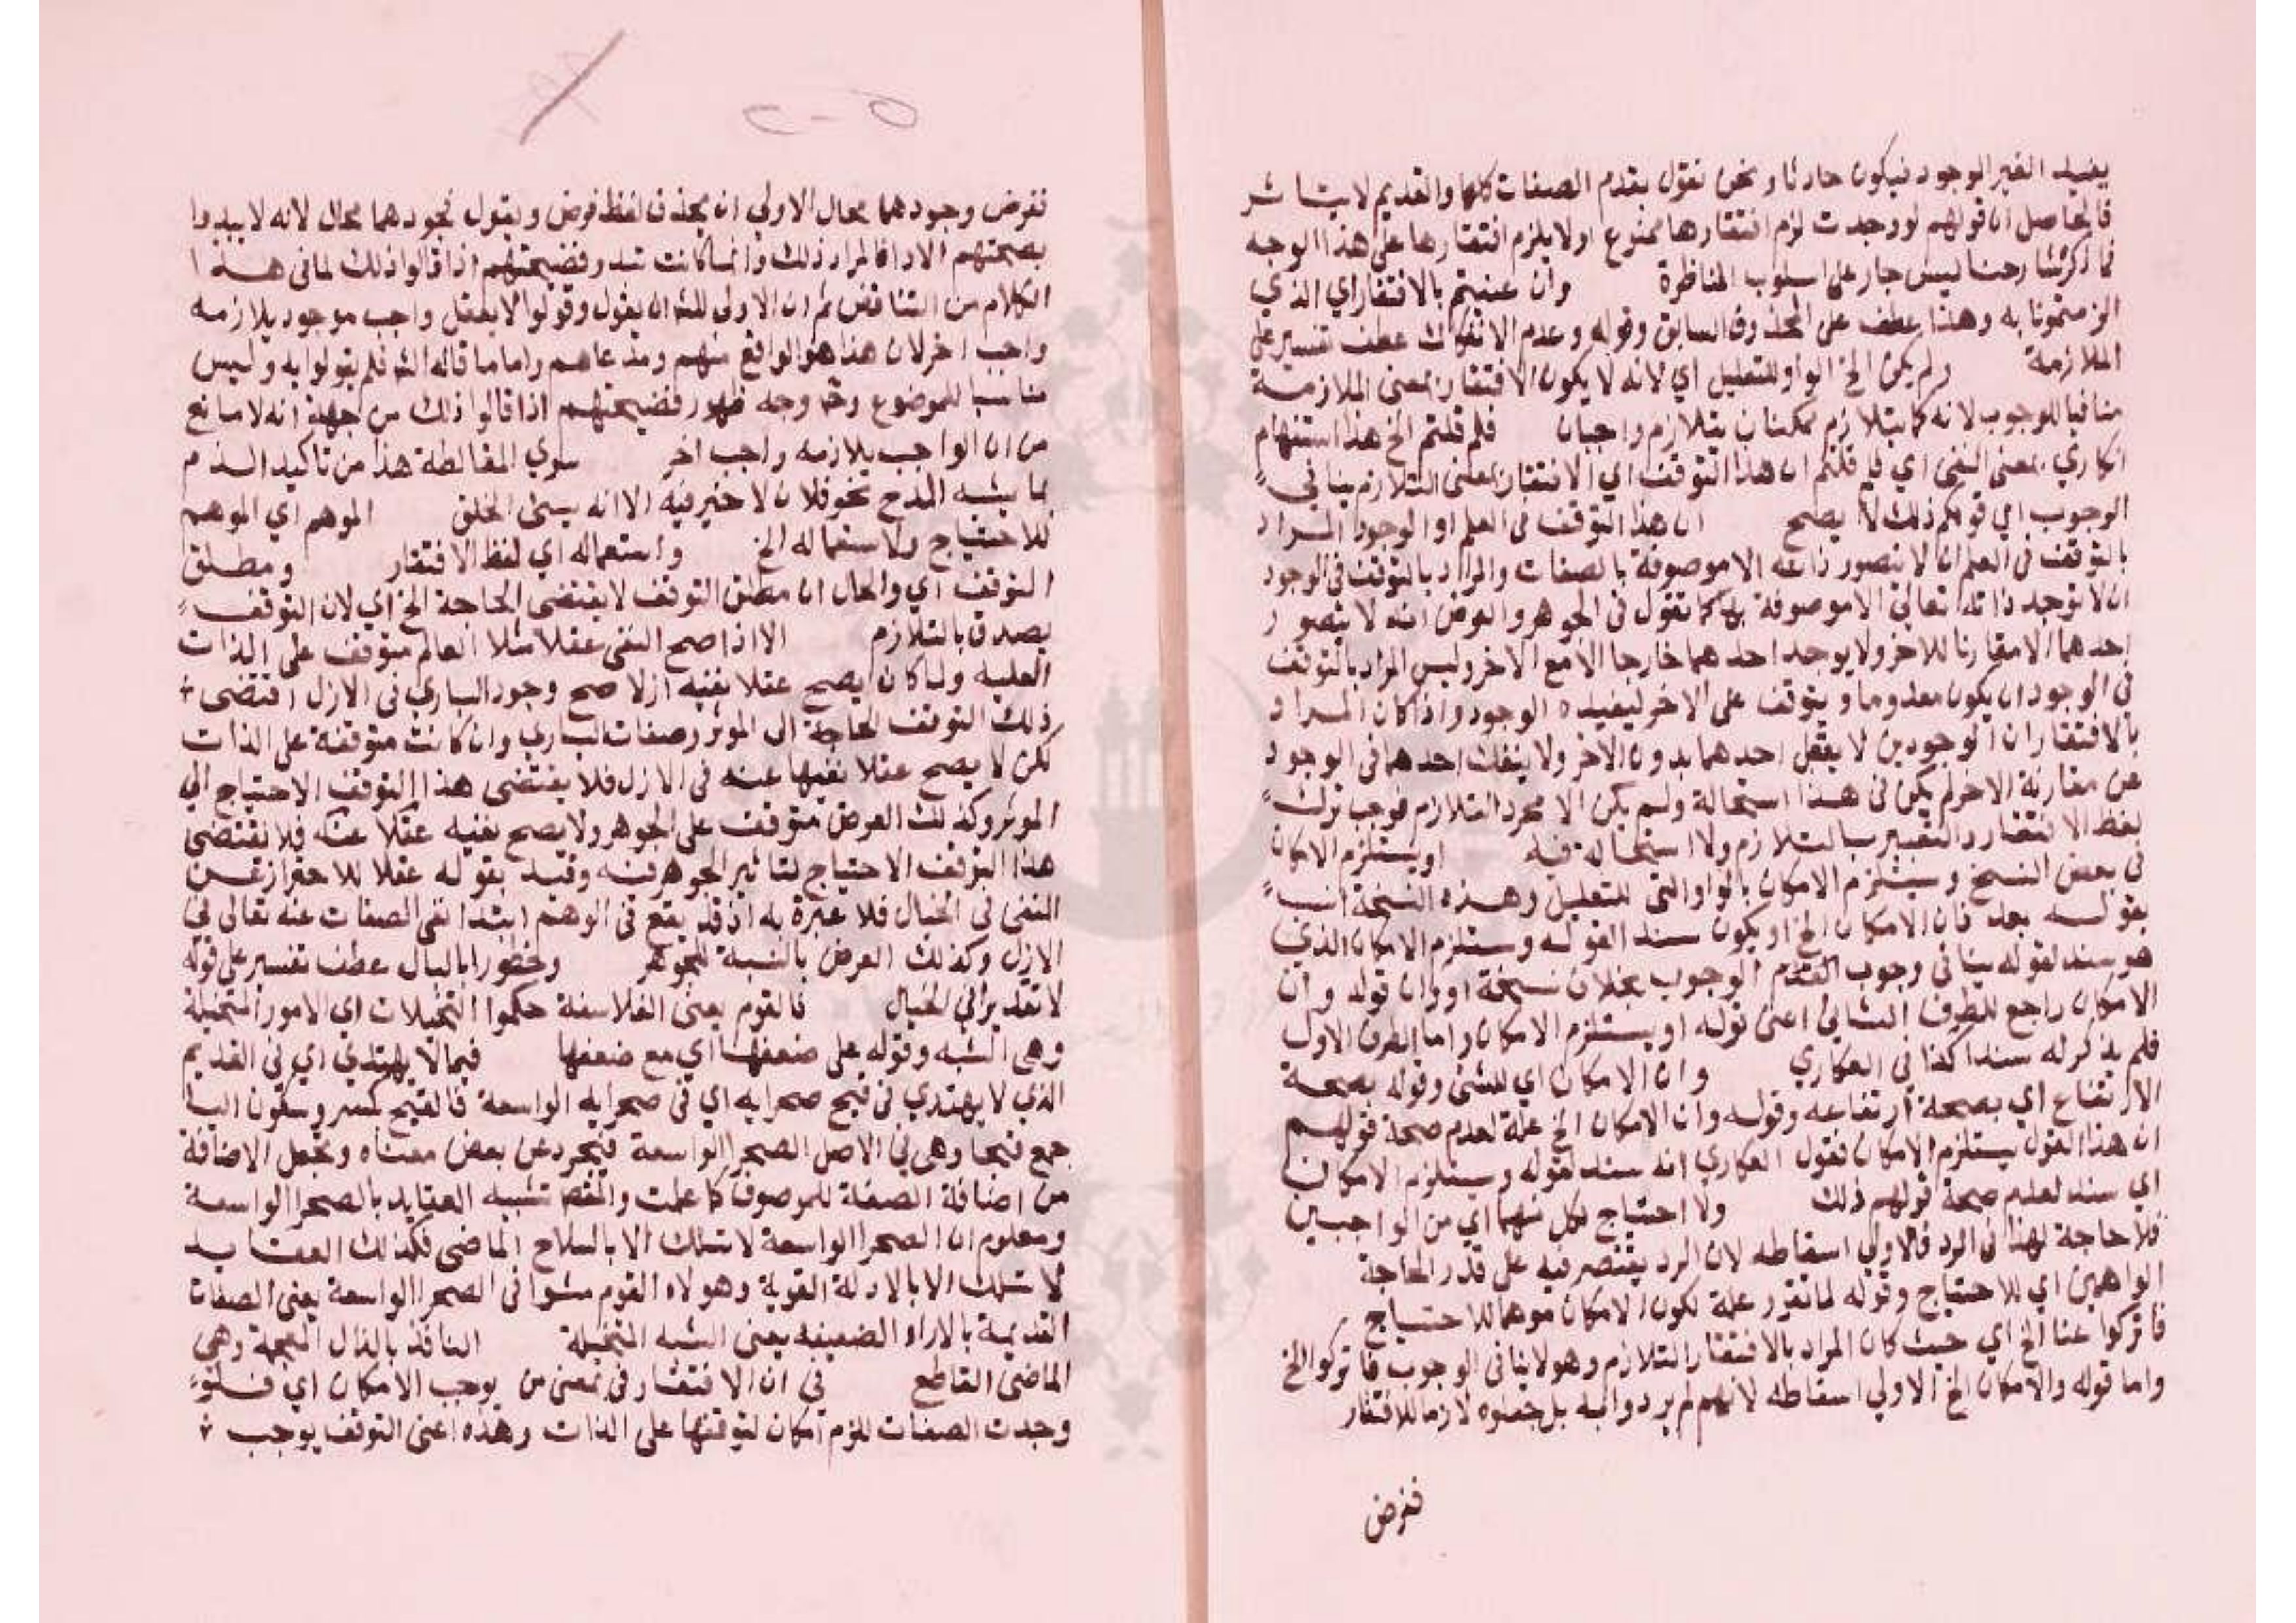 يفيد الغير الوجود فيكون حادثا ونحن نقول بقدم الصفات كلها والقديم لا يتاثر
فالحاصل ان قولهم لو وجدت لزم افتقارها ممنوع اولا يلزم افتقارها على هذا الوجه
فما ذكرتنا رحنا ليس جار على اسلوب المناظرة وان عنيتم بالافتقار اي الذي
الزمتمونا به وهذا عطف على المحذوف السابق وقوله وعدم الانفكاك عطف تفسير على
الملازمة ولم يكن الخ الواو للتعليل اي لانه لا يكون الافتقار بمعنى الملازمة
منافيا للوجوب لانه كما يتلازم ممكنان يتلازم واجبان فلم قلتم الخ هذا استفهام
انكاري بمعنى النفي اي فلم قلتم ان هذا التوقف اي الافتقار بمعنى التلازم ينافي
الوجوب اي قولكم ذلك لا يصح ان هذا التوقف في العلم او الوجود المراد
بالتوقف في العلم ان لا نتصور ذاته الا موصوفة بالصفات والمراد بالتوقف في الوجود
ان لا توجد ذاته تعالى الا موصوفة بها كما نقول في الجوهر والعرض انه لا يتصور
احدهما الا مقارنا للاخر ولا يوجد احدهما خارجا الا مع الاخر وليس المراد بالتوقف
في الوجود ان يكون معدوما ويتوقف على الاخر ليفيده الوجود واذا كان المراد
بالافتقار ان الوجودين لا يعقل احدهما بدون الاخر ولا ينفك احدهما في الوجود
عن مقارنة الاخر لم يكن في هذا استحالة ولم يكن الا مجرد التلازم فوجب ترك
لفظ الافتقار والتعبير بالتلازم ولا استحالة فيه او يستلزم الامكان
في بعض النسخ ويستلزم الامكان بالواو التي للتعليل وهذه النسخة انسب
بقوله بعد فان الامكان الخ او يكون سند القوله ويستلزم الامكان الذي
هو سند لقوله ينافي وجوب القدم الوجوب بخلاف نسخة او وان قوله وان
الامكان راجع للطرف الثاني اعني قوله او يستلزم الامكان واما الطرف الاول
فلم يذكر له سندا كذا في العكاري وان الامكان اي للشئ وقوله بصحة
الارتفاع اي بصحة ارتفاعه وقوله وان الامكان الخ علة لعدم صحة قولهم
ان هذا القول يستلزم الامكان فقول العكاري انه سند لقوله ويستلزم الامكان
اي سند لعدم صحة قولهم ذلك ولا احتياج لكل منهما اي من الواجبين
فلا حاجة لهذا في الرد فالاولى اسقاطه لان الرد يقتصر فيه على قدر الحاجة
الواهمين اي للاحتياج وقوله لما تقرر علة لكون الامكان موهما للاحتياج
فاتركوا عنا الخ اي حيث كان المراد بالافتقار التلازم وهو لا ينافي الوجوب فاتركوا الخ
واما قوله والامكان الخ الاولى اسقاطه لانهم لم يردوا به بل جعلوه لازما للافتقار
ففرض
ففرض وجودهما محال الاولى ان يحذف لفظ فرض ويقول فوجودهما محال لانه لا يبدوا
بصحتهم الا اذا المراد ذلك وانما كانت تبدو فضيحتهم اذا قالوا ذلك لما في هذا
الكلام من التناقض ثم ان الاولى للش ان يقول وقولوا لا يعقل واجب موجود يلازمه
واجب اخر لان هذا هو الواقع منهم ومدعاهم واما ما قاله الش فلم يقولوا به وليس
مناسبا للموضوع وح وجه ظهور فضيحتهم اذا قالوا ذلك من جهة انه لا مانع
من ان الواجب يلازمه واجب اخر سوي المغالطة هذا من تاكيد الذم
بما يشبه المدح نحو فلان لا خير فيه الا انه يسئ الخلق الموهم اي الموهم
للاحتياج ولاستعماله الخ واستعماله اي لفظ الافتقار ومطلق
التوقف اي والحال ان مطلق التوقف لا يقتضي الحاجة الخ اي لان التوقف
يصدق بالتلازم الا اذا صح النفي عقلا مثلا العالم متوقف على الذات
العلية ولما كان يصح عقلا نفيه ازلا صح وجود الباري في الازل اقتضى
ذلك التوقف الحاجة الى الموثر وصفات الباري وان كانت متوقفة على الذات
لكن لا يصح عقلا نفيها عنه في الازل فلا يقتضي هذا التوقف الاحتياج الي
الموثر وكذلك العرض متوقف على الجوهر ولا يصح نفيه عقلا عنه فلا يقتضي
هذا التوقف الاحتياج لتاثير الجوهر فيه وقيد بقوله عقلا للاحتراز عن
النفي في الخيال فلا عبرة به اذ قد يقع في الوهم ابتدا نفي الصفات عنه تعالى في
الازل وكذلك العرض بالنسبة للجوهر وخطورا بالبال عطف تفسير على قوله
لا تقدير في الخيال فالقوم يعني الفلاسفة حكموا التخيلات اي الامور المتخيلة
وهي الشبه وقوله على ضعفها اي مع ضعفها فيما لا يهتدي اي في القديم
الذي لا يهتدي في فيح صحرايه اي في صحرايه الواسعة فالفيح بكسر وسكون اليا
جمع فيحا وهي في الاصل الصحرا الواسعة فيجرد عن بعض معناه وتجعل الاضافة
من اضافة الصفة للموصوف كما علمت والمقص تشبيه العقايد بالصحرا الواسعة
ومعلوم ان الصحرا الواسعة لا تسلك الا بالسلاح الماضي فكذلك العقايد
لا تسلك الا بالادلة القوية وهولاء القوم مشوا في الصحرا الواسعة يعني الصفات
القديمة بالاراء الضعيفه يعني الشبه المتخيلة النافذ بالذال المعجمة وهي
الماضي القاطع في ان الافتقار في بمعنى من يوجب الامكان اي فلو
وجدت الصفات للزم امكان لتوقفها على الذات وهذه اعني التوقف يوجب